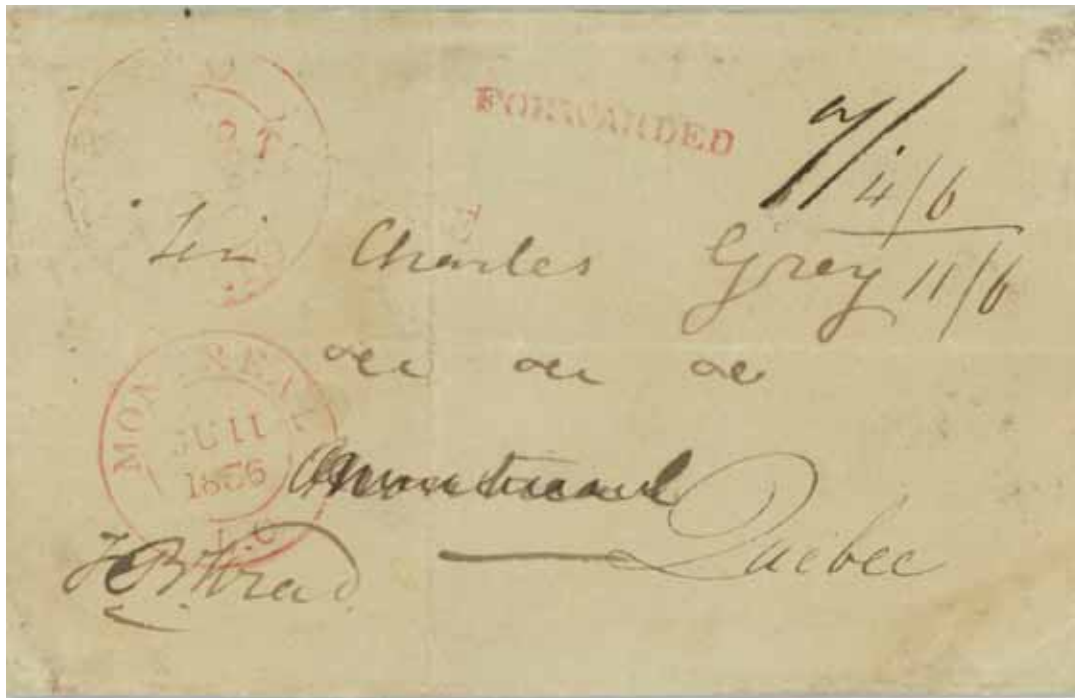 FORWARDED
7/
4/6
11/6
Sir Charles Grey
&c &c &c
Montreal
Quebec
MONTREAL
JU 11
1836
L.C
FBHead